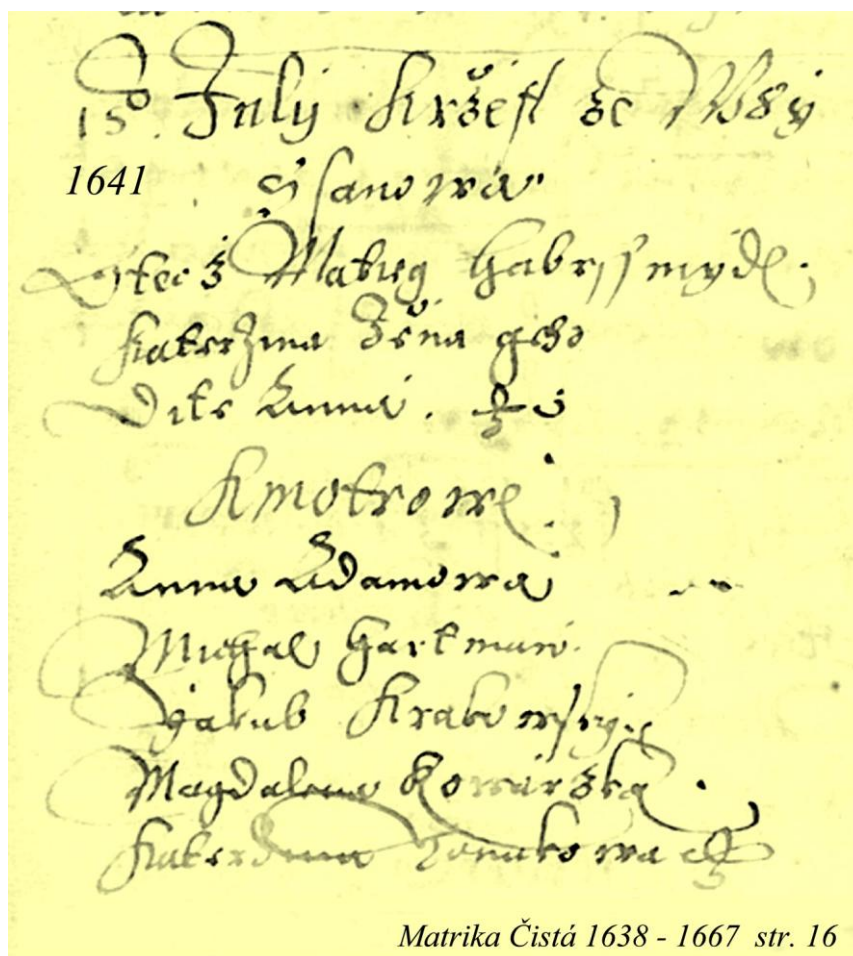 15. July Kržest ze Wsy
1641
Cisanowa
Otecz Matieg Habrssmydl
Kateržina žena geho
Dite Anna.
Kmotrowe
Anna Adamowa
Michal Hartman
Jakub Krakowsky
Magdalena Kowarzka
Kateržina
Matrika Čistá 1638 - 1667 str. 16